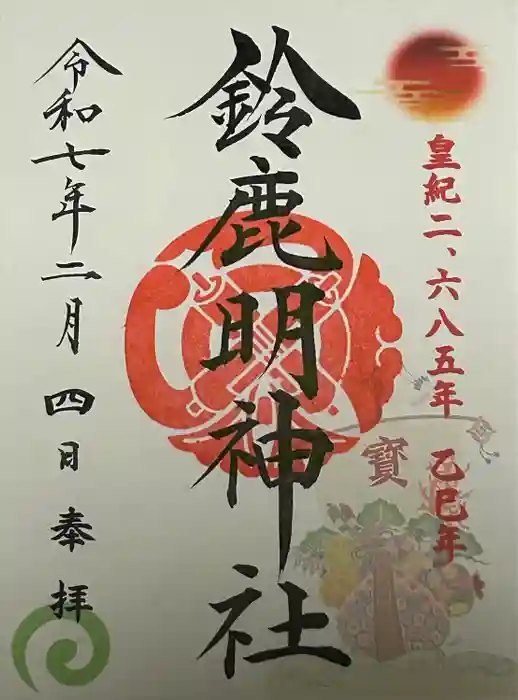 皇紀二、六八五年 乙巳年
寳
鈴鹿明神社
令和七年二月四日奉拝